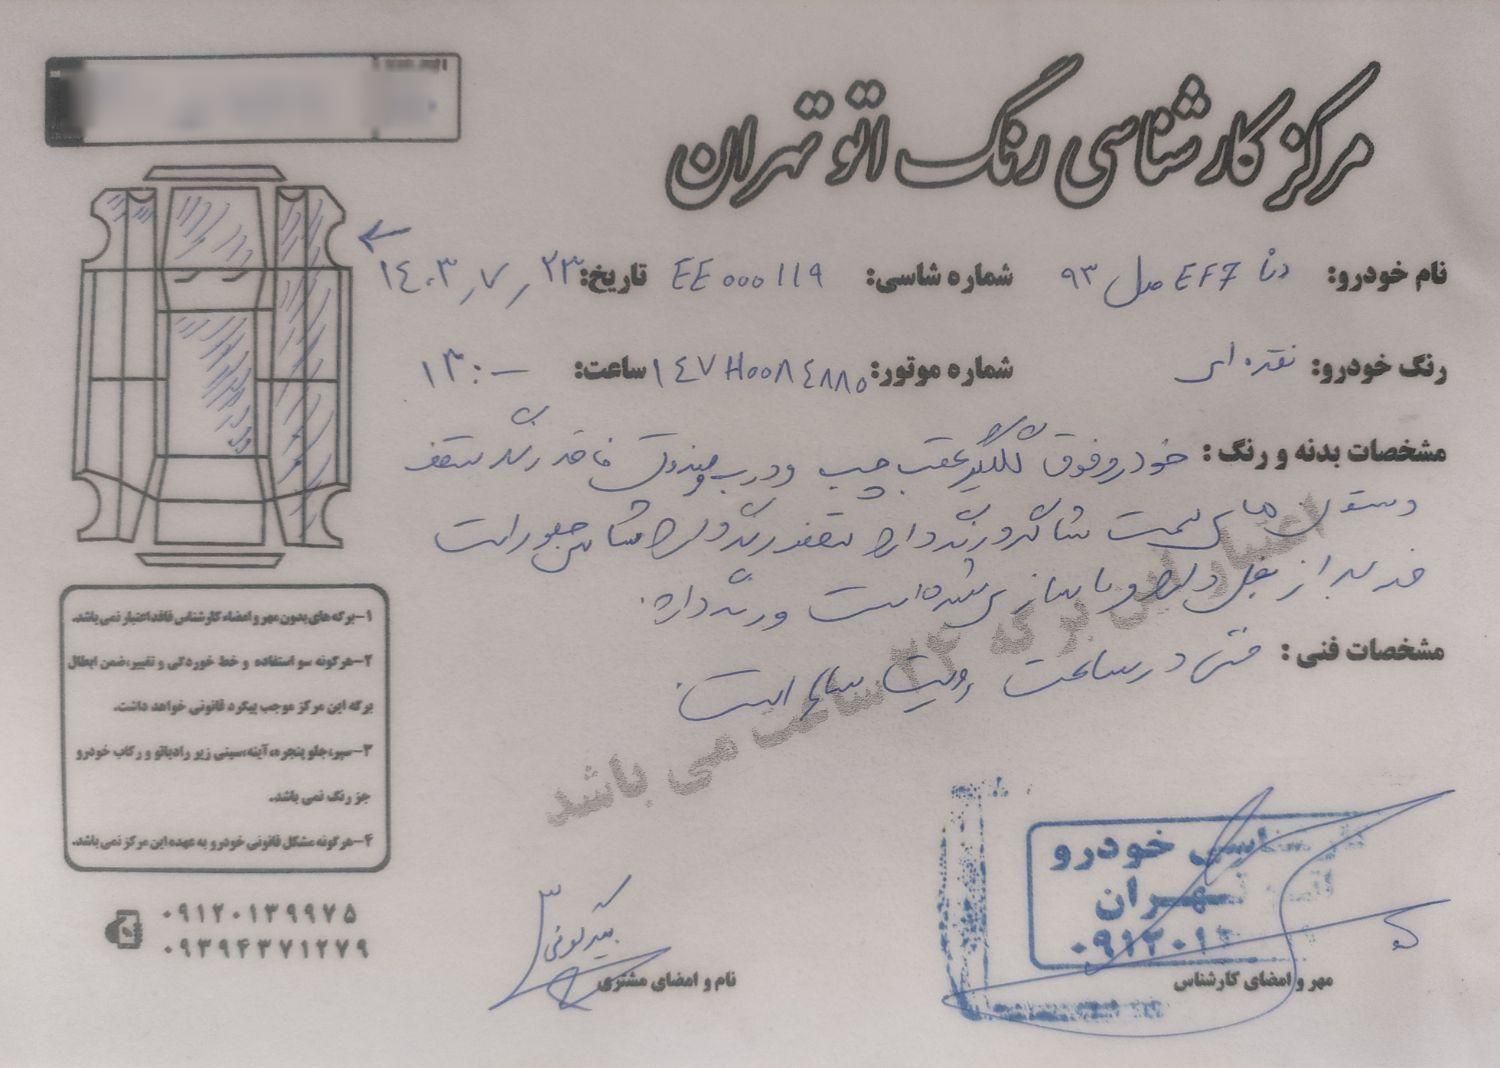 مرکز کارشناسی رنگ اتو تهران
نام خودرو: دنا EF7 مدل ۹۳ شماره شاسی: EE000119 تاریخ: ۱۴۰۳٫۷٫۲۳
رنگ خودرو: نقره ای شماره موتور: ۱۴۷H۰۰۸۴۸۸۵ ساعت: ۱۳:۰۰
مشخصات بدنه و رنگ: خودرو فوق گلگیر عقب چپ و درب صندوق فاقد رنگ سقف
و ستون های سمت شاگرد رنگ دارد سقف رنگ دارد شاسی جلو است
ضربه از بغل دارد و بازسازی شده است و رنگ دارد.
مشخصات فنی: فنی در ساعت رویت سالم است.
اعتبار این برگه ۲۴ ساعت می باشد
۱-برگه های بدون مهر و امضاء کارشناس فاقد اعتبار نمی باشد.
۲-هرگونه سو استفاده و خط خوردگی و تغییر، ضمن ابطال
برگه این مرکز موجب پیگرد قانونی خواهد داشت.
۳-سپر، جلو پنجره، آینه، سینی زیر رادیاتو و رکاب خودرو
جز رنگ نمی باشد.
۴-هرگونه مشکل قانونی خودرو به عهده این مرکز نمی باشد.
۰۹۱۲۰۱۳۹۹۷۵
۰۹۳۹۴۳۷۱۲۷۹
نام و امضای مشتری
خودرو
تهران
مهر و امضای کارشناس